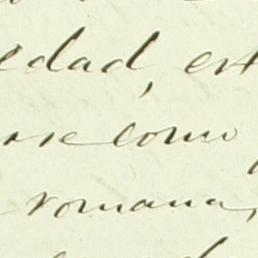 edad, est
rse como
romana,